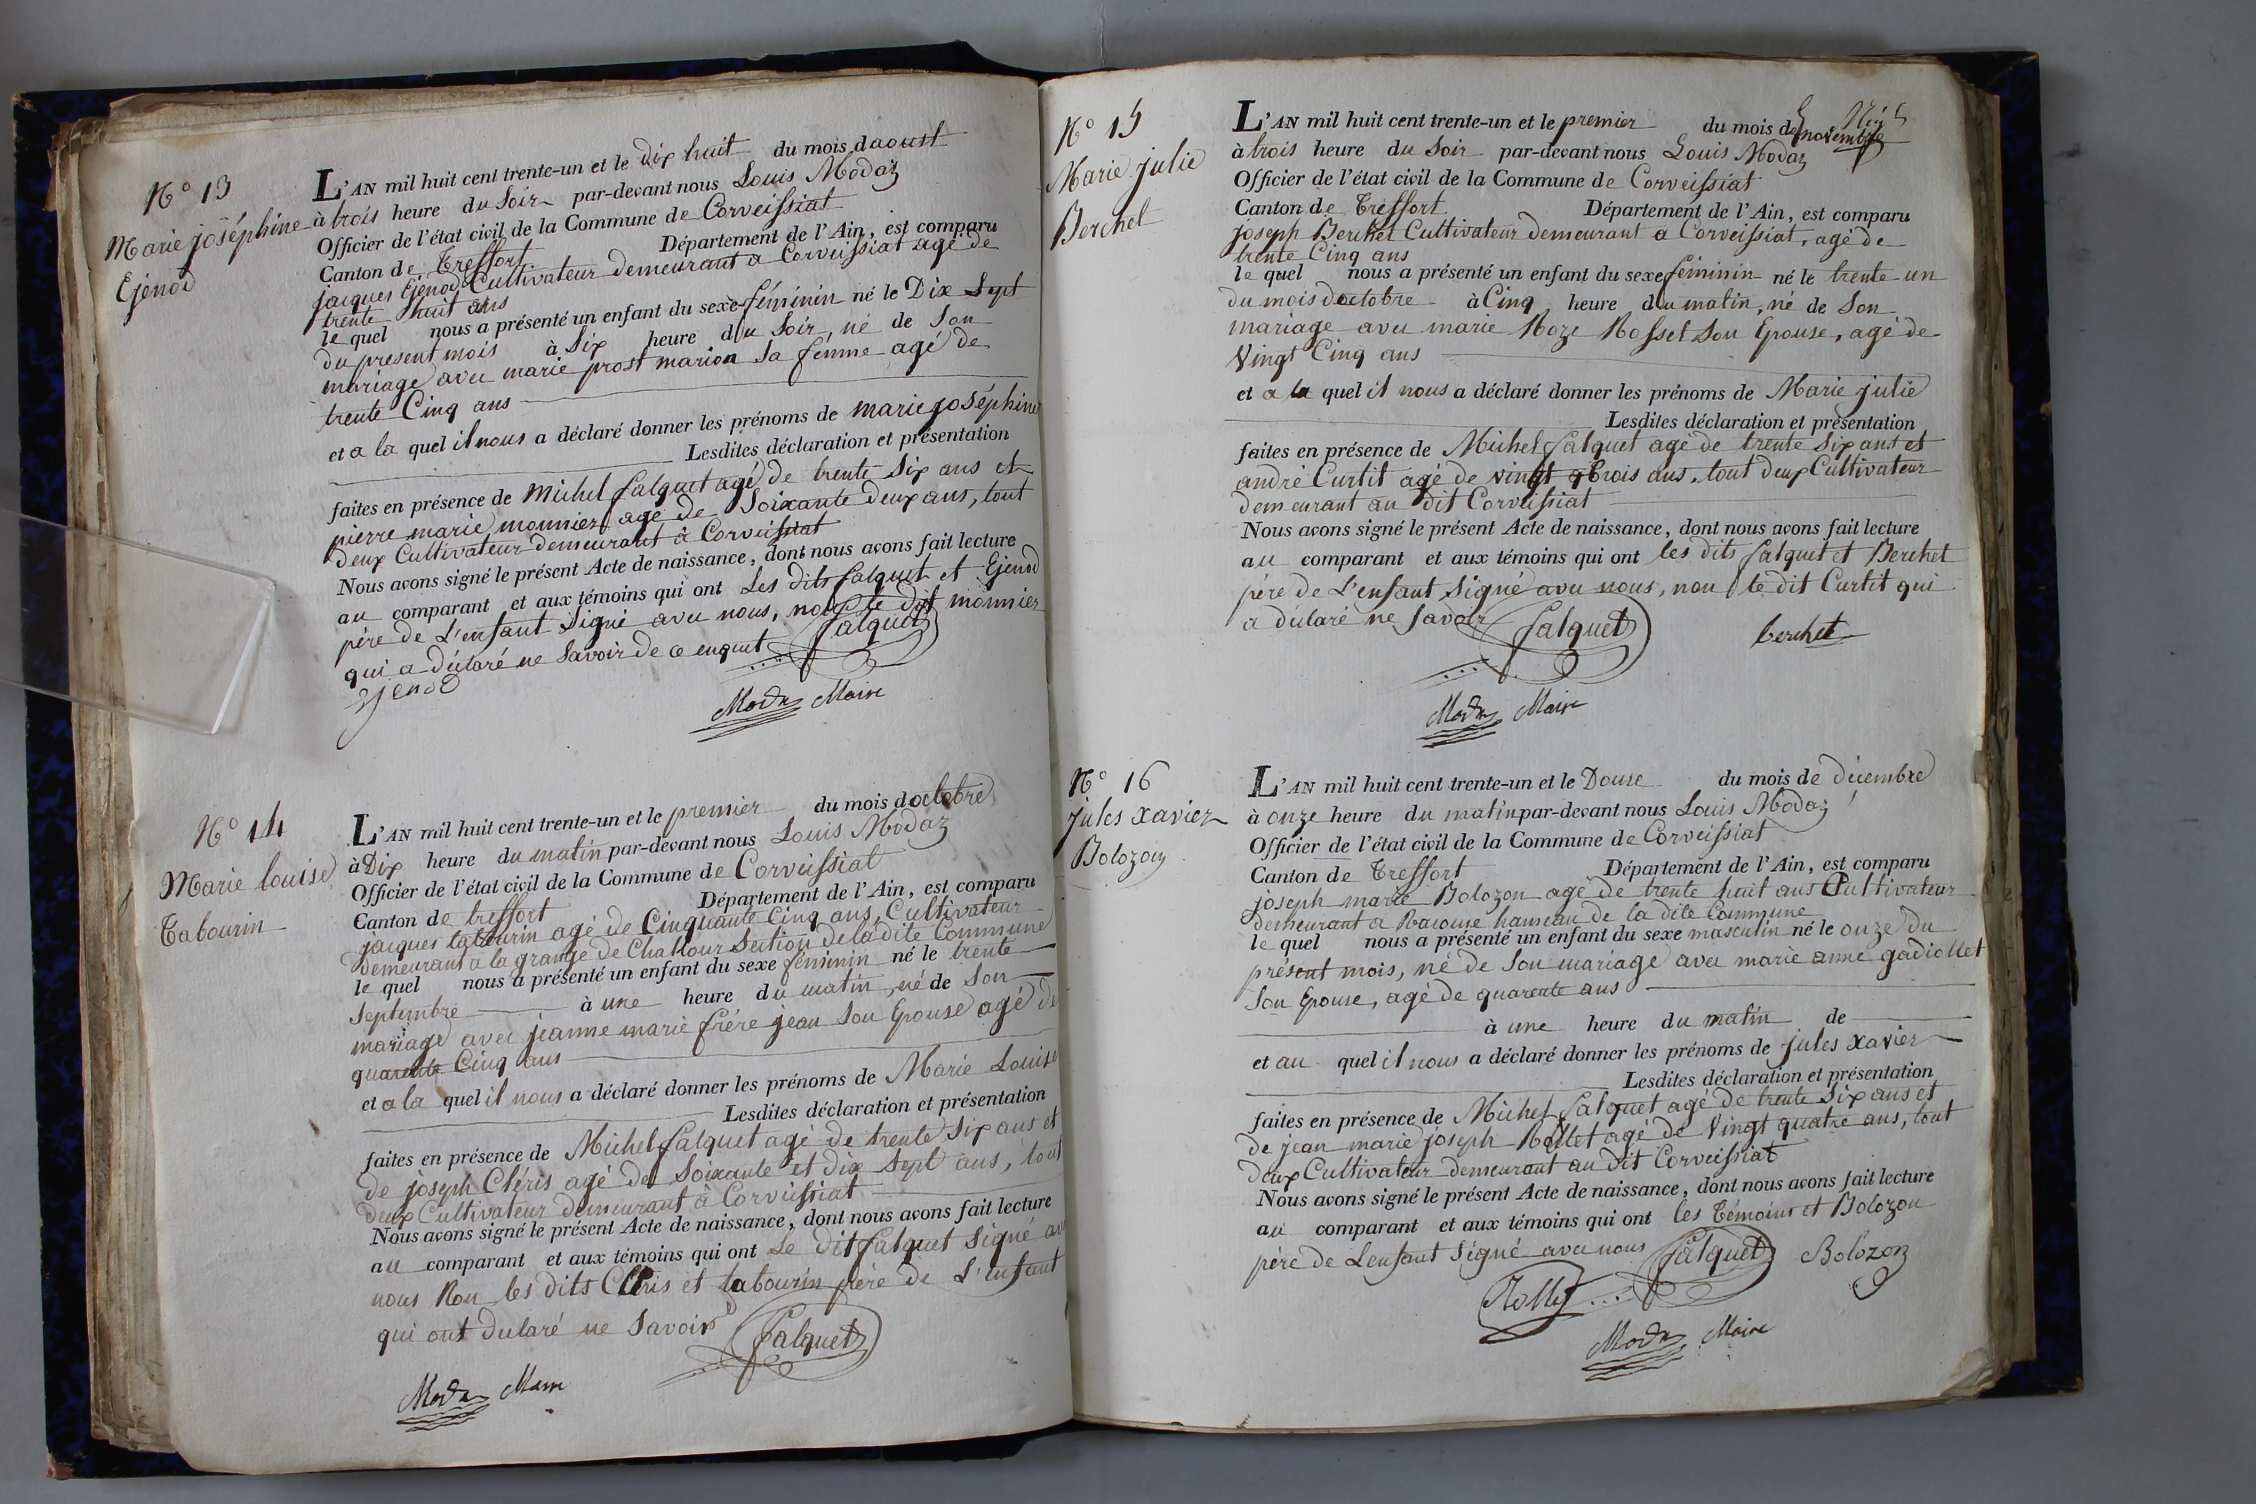 N.° 13
Marie joséphine
Ejenod
L'AN mil huit cent trente-un et le dix huit du mois daoust
à trois heure du Soir par-devant nous Louis Modaz
Officier de l'état civil de la Commune de Corveissiat
Canton de Treffort Département de l'Ain, est comparu
jacques Ejenod Cultivateur demeurant a Corveissiat agé de
trente huit ans
le quel nous a présenté un enfant du sexe féminin né le Dix Sept
du present mois à Six heure du Soir, né de Son
mariage avec marie prost marion Sa fémme agé de
trente Cinq ans
et a la quel il nous a déclaré donner les prénoms de marie joséphine
Lesdites déclaration et présentation
faites en présence de Michel falquet agé de trente Six ans et
pierre marie monnier agé de Soixante deux ans, tout
deux Cultivateur demeurant à Corveissiat
Nous avons signé le présent Acte de naissance, dont nous avons fait lecture
au comparant et aux témoins qui ont Les dits falquet et Ejenod
père de L'enfant Signé avec nous, non le dit monnier
qui a déclaré ne Savoir de ce enquit falquet
Ejenod
Modaz Maire
N.° 14
Marie louise
Tabourin
L'AN mil huit cent trente-un et le premier du mois doctobre
à Dix heure du matin par-devant nous Louis Modaz
Officier de l'état civil de la Commune de Corveissiat
Canton de treffort Département de l'Ain, est comparu
jacques tabourin agé de Cinquante Cinq ans, Cultivateur
demeurant a la grange de Chatour Section de la dite Commune
le quel nous a présenté un enfant du sexe féminin né le trente
Septembre à une heure du matin, né de Son
mariage avec jeanne marie frére jean Son Epouse agé de
quarente Cinq ans
et a la quel il nous a déclaré donner les prénoms de Marie Louise
Lesdites déclaration et présentation
faites en présence de Michel falquet agé de trente Six ans et
de joseph Cléris agé de Soixante et dix Sept ans, tout
deux Cultivateur demeurant à Corveissiat
Nous avons signé le présent Acte de naissance, dont nous avons fait lecture
au comparant et aux témoins qui ont Le dit falquet Signé avec
nous Non les dits Cléris et tabourin père de L'enfant
qui ont déclaré ne Savoir falquet
Modaz Maire
N.° 15
Marie julie
Berchet
L'AN mil huit cent trente-un et le premier du mois de novembre
à trois heure du Soir par-devant nous Louis Modaz
Officier de l'état civil de la Commune de Corveissiat
Canton de Treffort Département de l'Ain, est comparu
joseph Berchet Cultivateur demeurant a Corveissiat, agé de
trente Cinq ans
le quel nous a présenté un enfant du sexe féminin né le trente un
du mois doctobre à Cinq heure du matin, né de Son
mariage avec marie Roze Rosset Son Epouse, agé de
Vingt Cinq ans
et a la quel il nous a déclaré donner les prénoms de Marie julie
Lesdites déclaration et présentation
faites en présence de Michel falquet agé de trente Six ans et
andré Curtit agé de vingt trois ans, tout deux Cultivateur
demeurant au dit Corveissiat
Nous avons signé le présent Acte de naissance, dont nous avons fait lecture
au comparant et aux témoins qui ont les dits falquet et Berchet
père de L'enfant Signé avec nous, non le dit Curtit qui
a déclaré ne Savoir falquet berchet
Modaz Maire
N.° 16
jules xavier
Bolozon
L'AN mil huit cent trente-un et le Douse du mois de décembre
à onze heure du matin par-devant nous Louis Modaz
Officier de l'état civil de la Commune de Corveissiat
Canton de Treffort Département de l'Ain, est comparu
joseph marie Bolozon agé de trente huit ans Cultivateur
demeurant a Racouse hameau de la dite Commune
le quel nous a présenté un enfant du sexe masculin né le onze du
présent mois, né de Son mariage avec marie anne gadiollet
Son Epouse, agé de quarente ans
à une heure du matin de
et au quel il nous a déclaré donner les prénoms de jules xavier
Lesdites déclaration et présentation
faites en présence de Michel falquet agé de trente Six ans et
de jean marie joseph Rollet agé de Vingt quatre ans, tout
deux Cultivateur demeurant au dit Corveissiat
Nous avons signé le présent Acte de naissance, dont nous avons fait lecture
au comparant et aux témoins qui ont les témoins et Bolozon
père de Lenfant Signé avec nous falquet Bolozon
Rollet
Modaz Maire